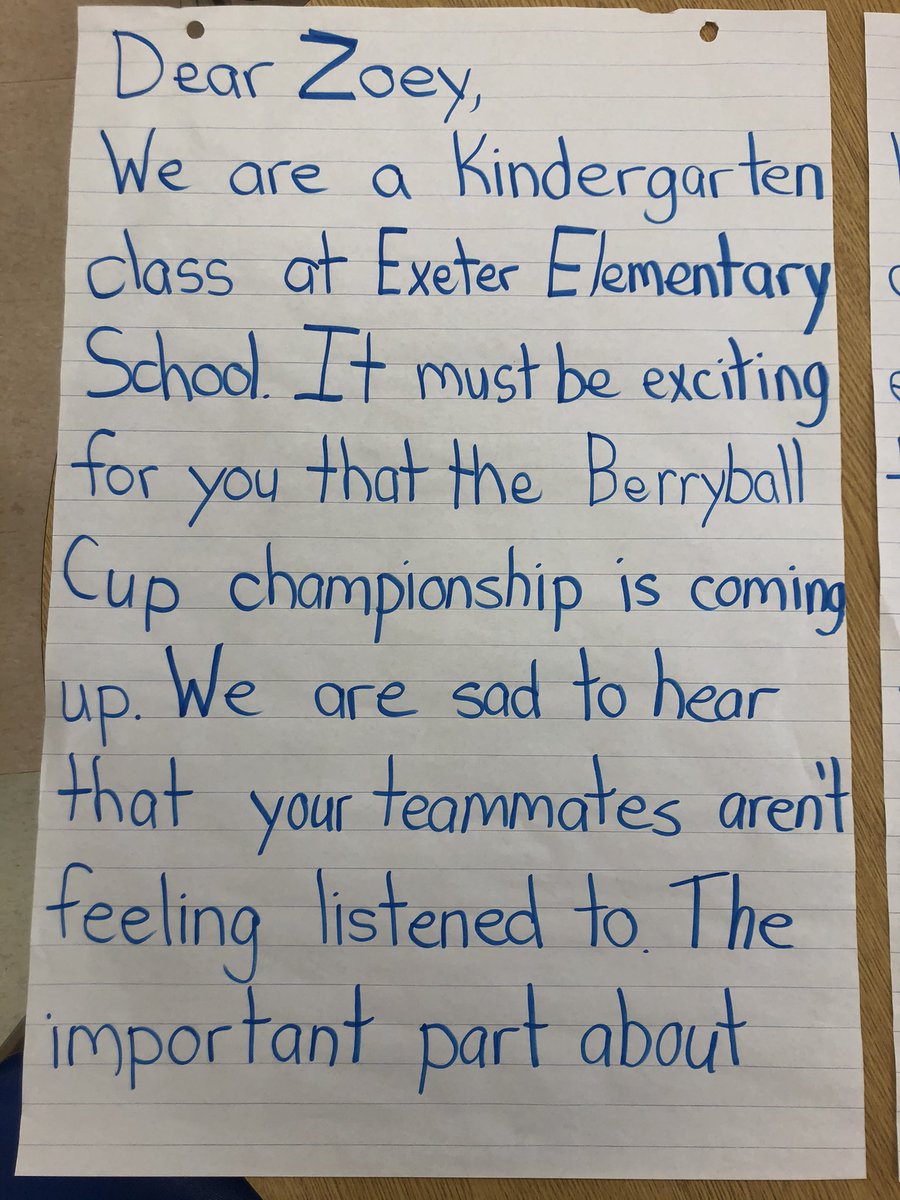 Dear Zoey,
We are a Kindergarten
class at Exeter Elementary
School. It must be exciting
for you that the Berryball
Cup championship is coming
up. We are sad to hear
that your teammates aren't
feeling listened to. The
important part about